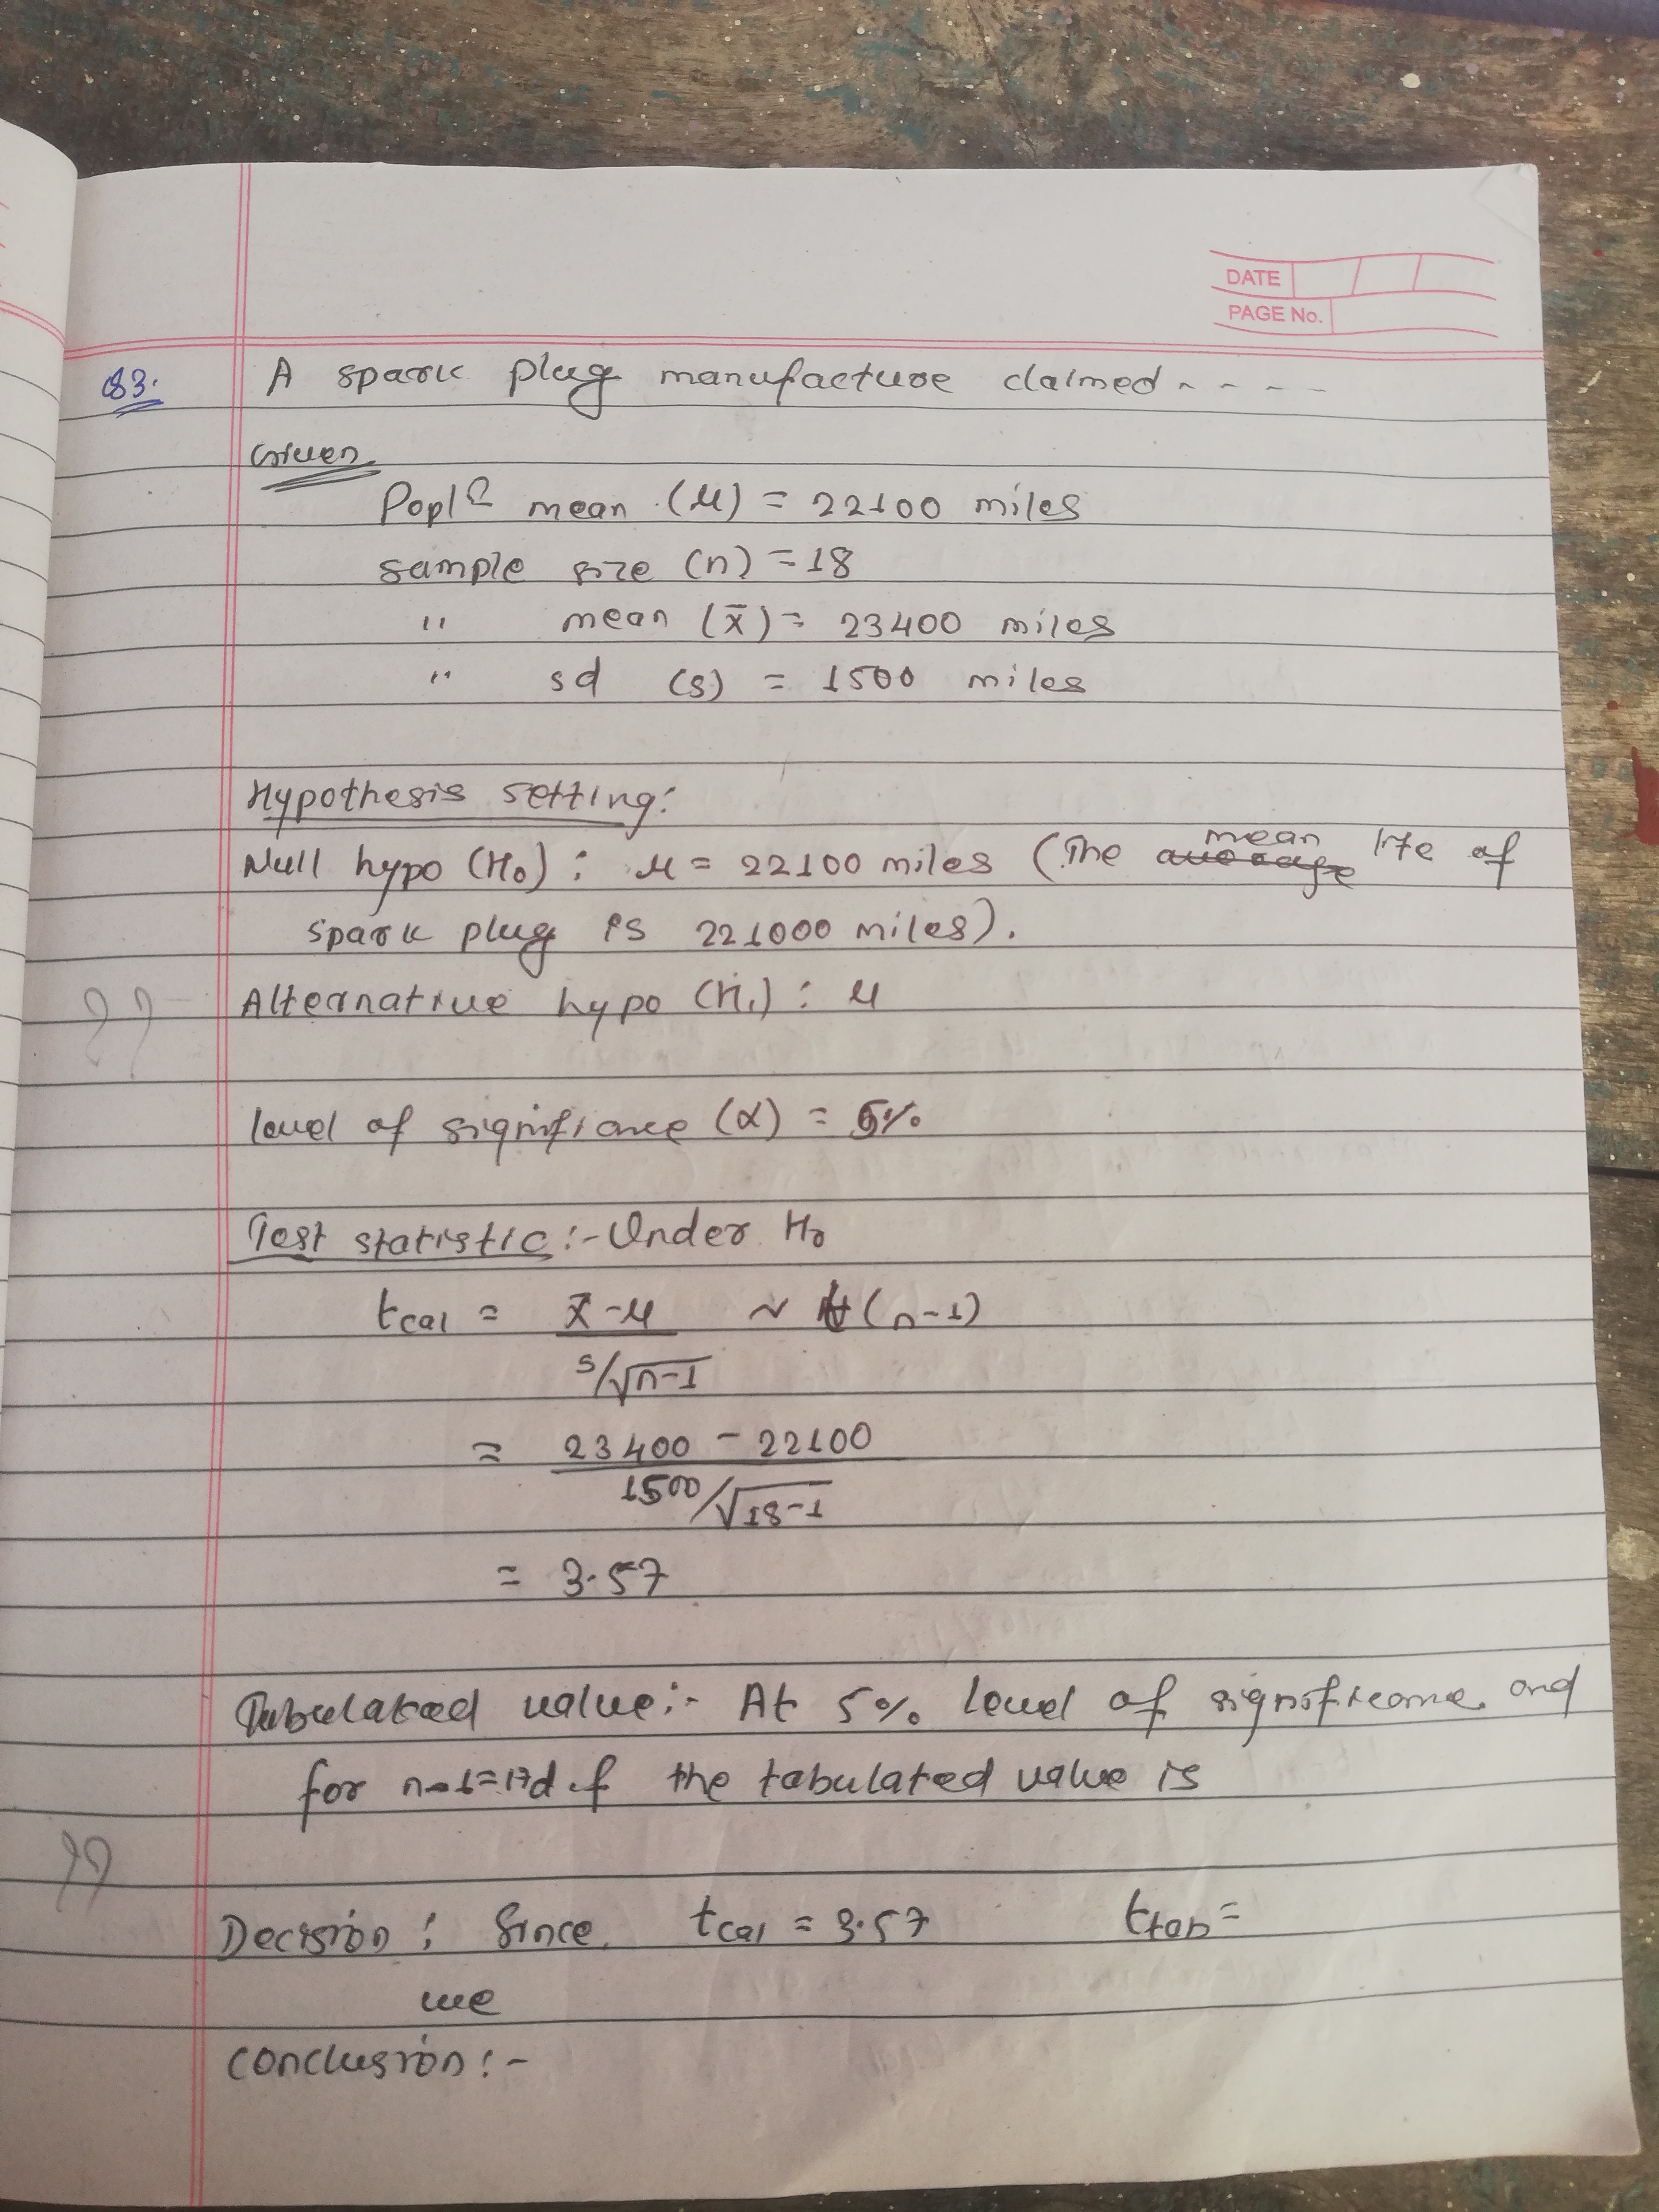 DATE
PAGE No.
Q3. A spark plug manufacture claimed - - - -
Given
Popln mean (μ) = 22100 miles
sample size (n) = 18
" mean (x̄) = 23400 miles
" sd (s) = 1500 miles
Hypothesis setting:
Null hypo (H₀) : μ = 22100 miles (The mean life of
spark plug is 221000 miles).
?? Alternative hypo (H₁) : μ
level of signifiance (α) = 5%
Test statistic :- Under H₀
tcal = x̄ - μ ~ t (n-1)
s/√n-1
= 23400 - 22100
1500/√18-1
= 3.57
Tabulated value:- At 5% level of significance and
for n-1=17 d.f the tabulated value is
??
Decision : Since tcal = 3.57 ttab =
we
conclusion :-